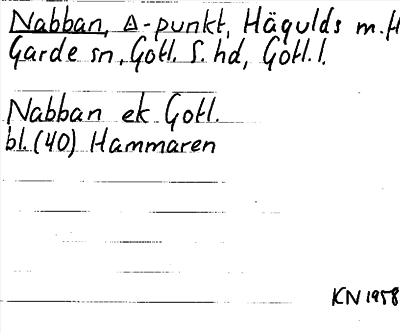 Nabban, Δ-punkt, Hägulds m.fl
Garde sn, Gotl. S. hd, Gotl. l.
Nabban ek Gotl.
bl. (40) Hammaren
KN 1958